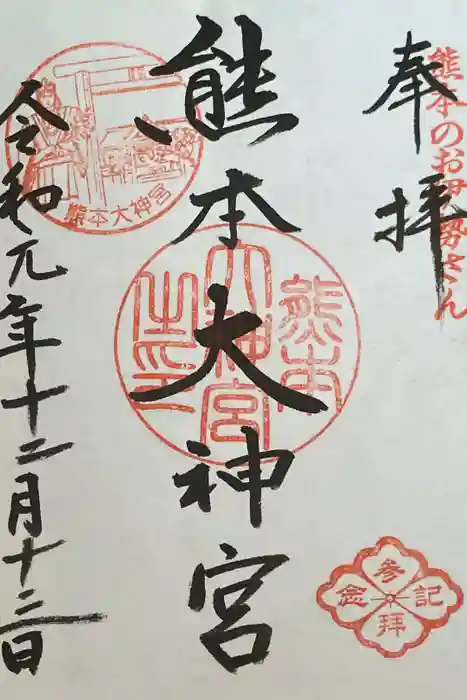 奉拝
熊本のお伊勢さん
熊本大神宮
熊本
大神宮
之印
熊本大神宮
参拝記念
令和元年十二月十三日